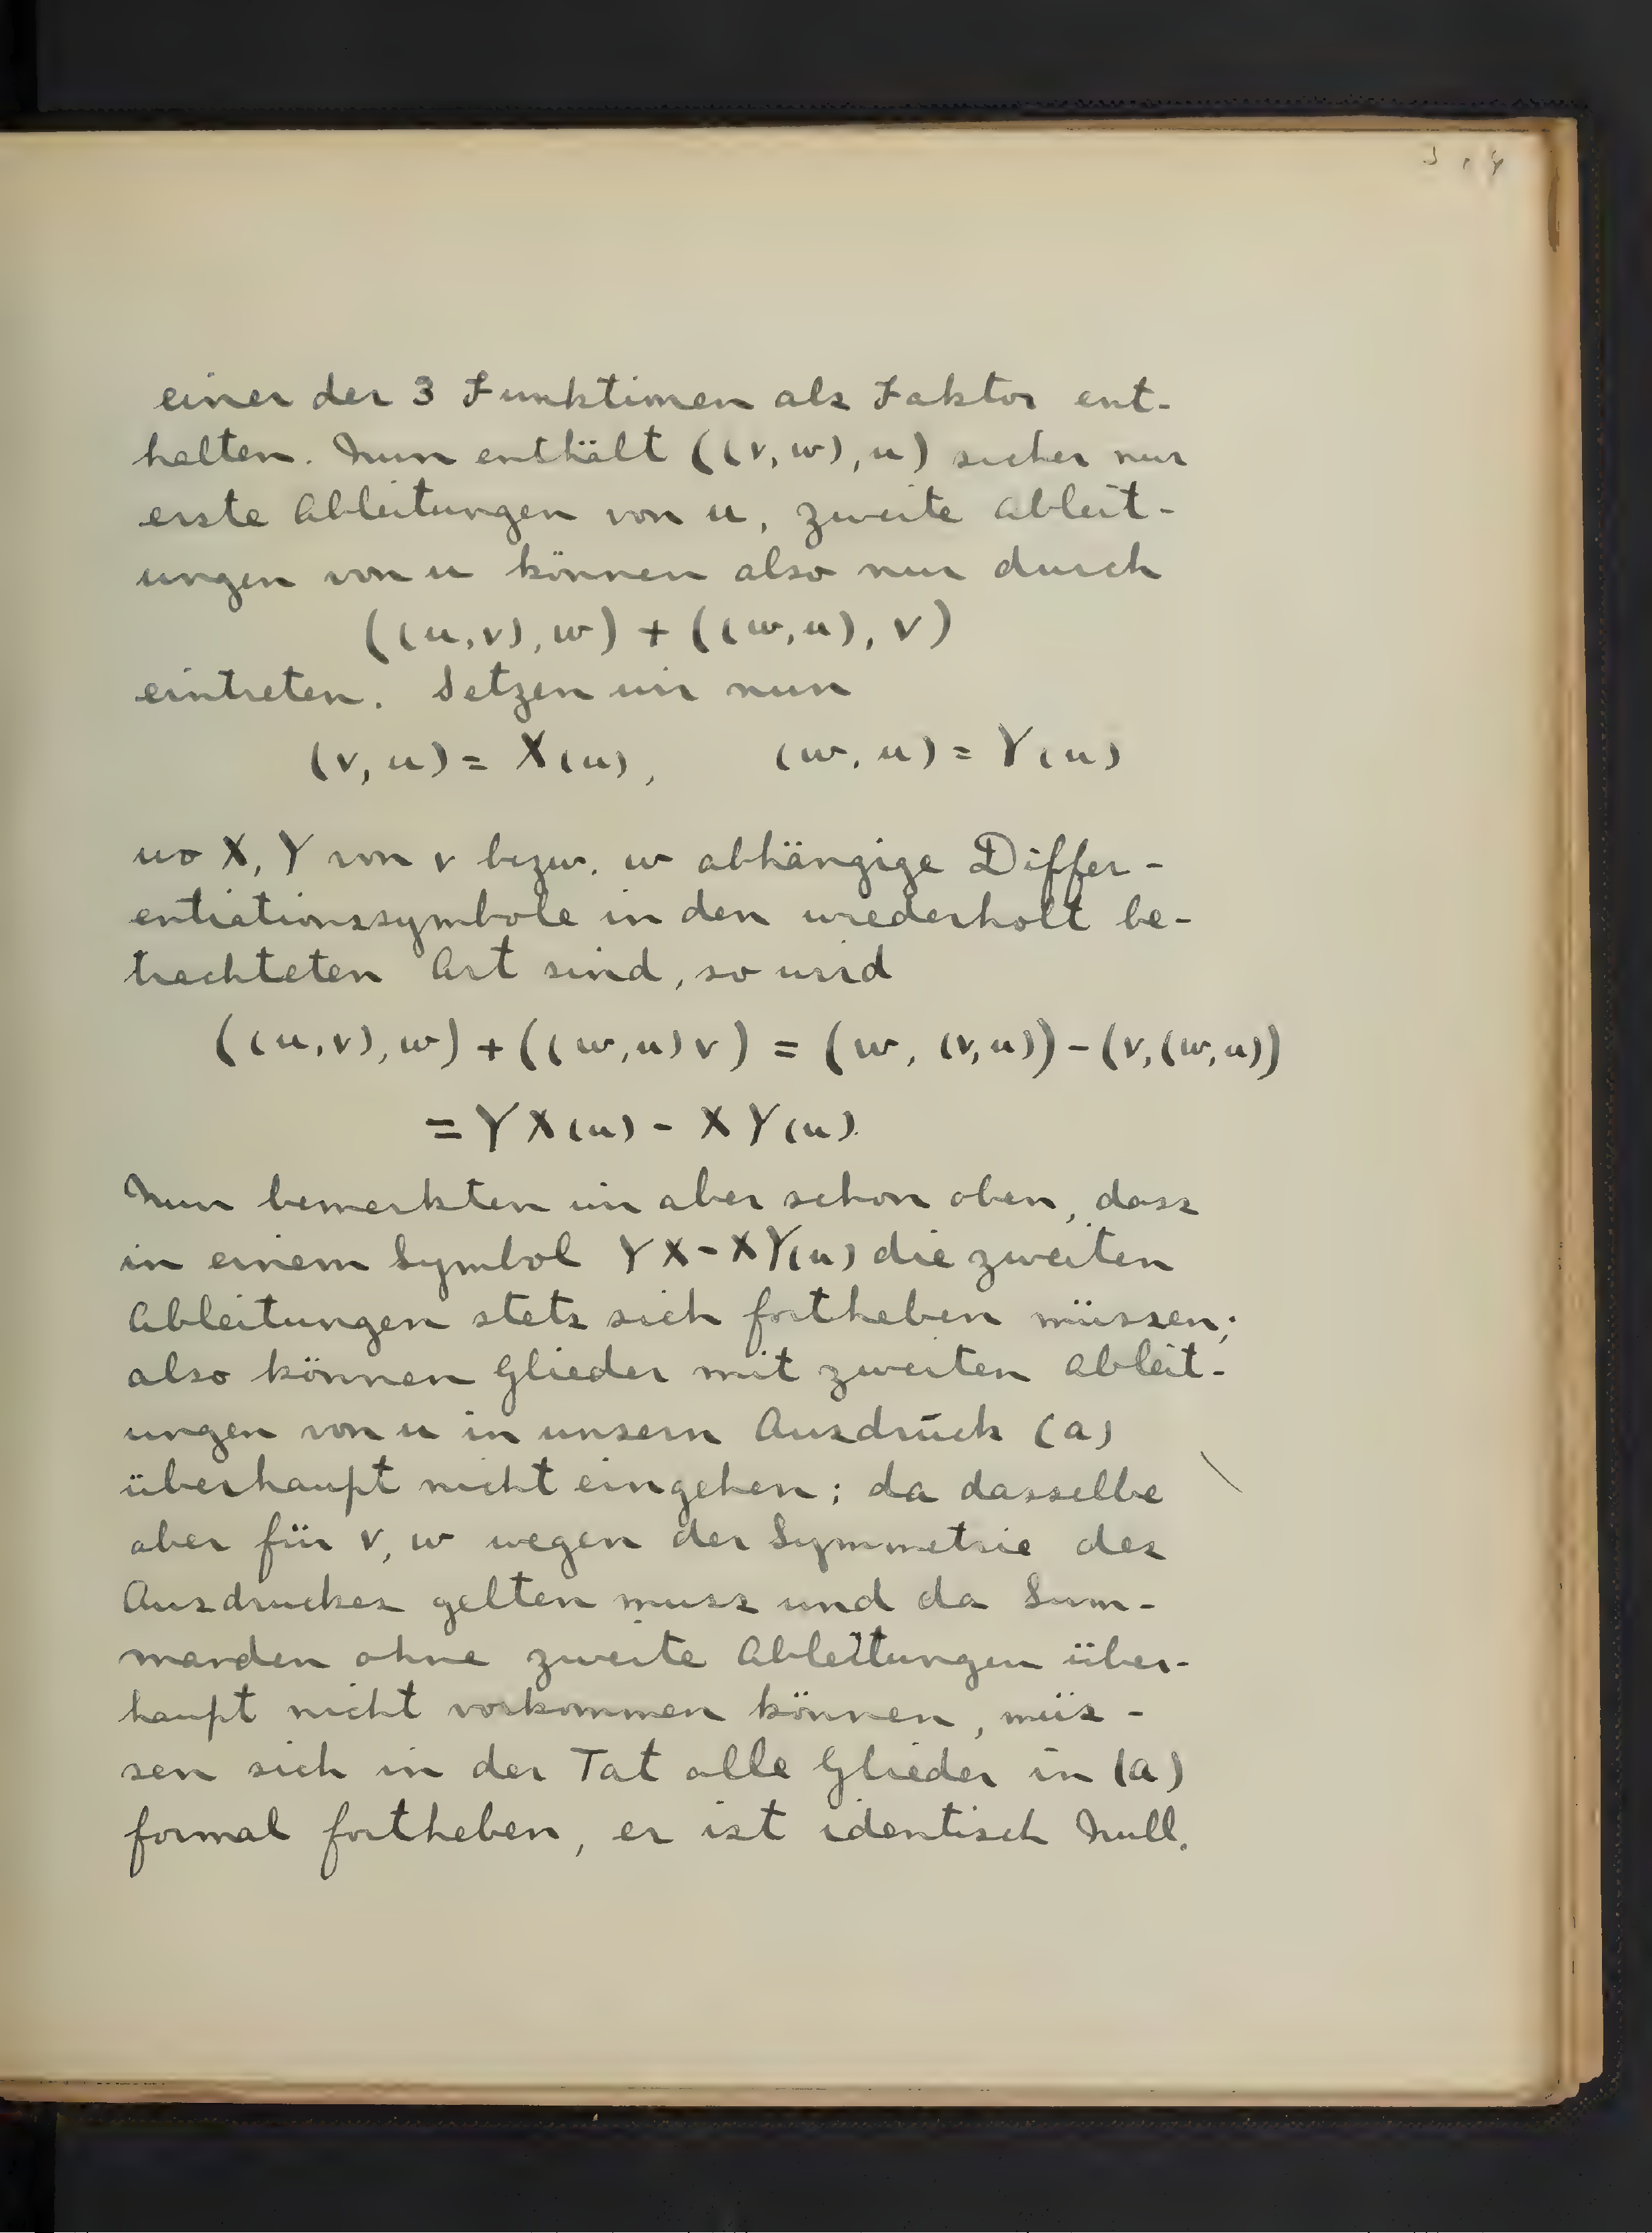 einer der 3 Funktionen als Faktor ent-
halten. Nun enthält ((v, w), u) sicher nur
erste Ableitungen von u, zweite Ableit-
ungen von u können also nur durch
((u,v), w) + ((w,u), v)
eintreten. Setzen wir nun
(v, u) = X(u), (w, u) = Y(u)
wo X, Y von v bezw. w abhängige Differ-
entiationssymbole in den wiederholt be-
trachteten Art sind, so wird
((u,v), w) + ((w,u) v) = (w, (v,u)) - (v,(w,u))
= Y X(u) - X Y(u).
Nun bemerkten wir aber schon oben, dass
in einem Symbol Y X - X Y(u) die zweiten
Ableitungen stets sich fortheben müssen;
also können Glieder mit zweiten Ableit-
ungen von u in unsern Ausdruck (a)
überhaupt nicht eingehen; da dasselbe
aber für v, w wegen der Symmetrie des
Ausdruckes gelten muss und da Sum-
manden ohne zweite Ableitungen über-
haupt nicht vorkommen können, müs-
sen sich in der Tat alle Glieder in (a)
formal fortheben, er ist identisch Null.